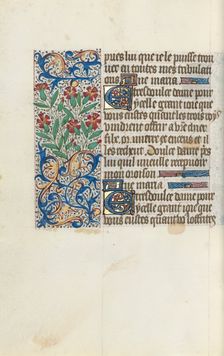 pues lui que ie le puisse trou
uer en toutes mes tribulati
ons Aue maria
Tres doulce dame pour
ycelle grant ioie que
vous eustes quant les trois roys
vindrent offrir a vostre chier
filz or mirre et encens et il
les receut Doulce dame
uueille receuoir
mon oroison
Aue maria
Tres doulce dame pour
ycelle grant ioie que
vous eustes quant vous offristes